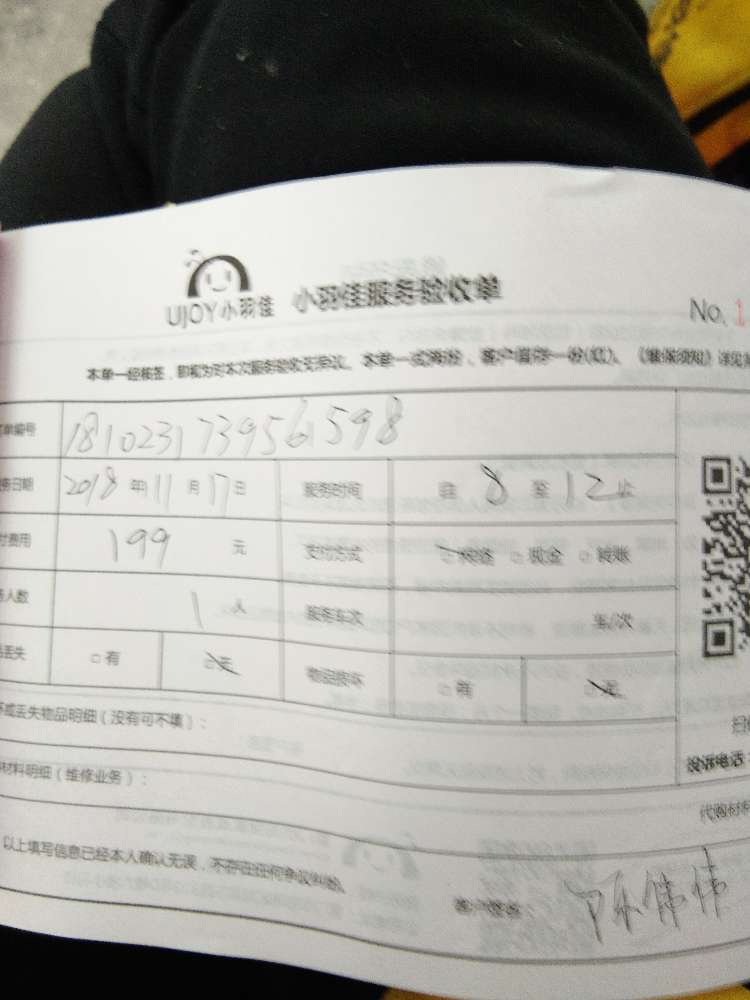 UJOY小羽佳 小羽佳服务验收单
No. 1
本单一经核签，即视为对本次服务验收无争议。本单一式两份，客户留存一份(红)。《维保须知》详见
单编号 1810231739561598
务日期 2018 年 11 月 17 日 服务时间 自 8 至 12 止
付费用 199 元 支付方式 □ 现金 □ 转账
人数 1 人 服务车次 车/次
丢失 □ 有 □ 无 物品损坏 □ 有 □ 无
坏或丢失物品明细（没有可不填）：
材料明细（维修业务）：
投诉电话：
代购材料
以上填写信息已经本人确认无误，不存在任何争议纠纷。
客户签名： 陈伟伟